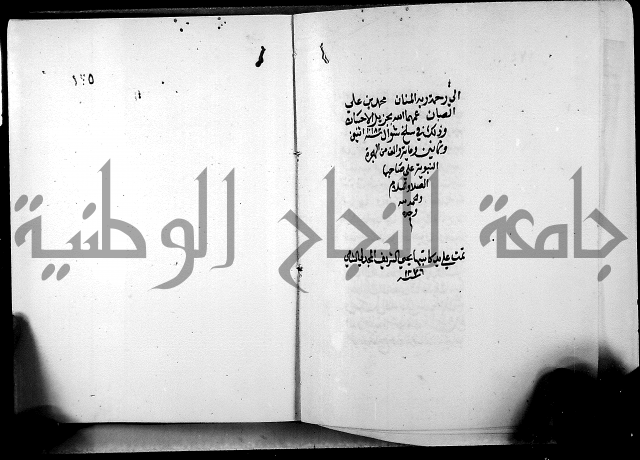 الى رحمة ربه المنان محمد بن علي
الصبان عمهما الله بجزيل الاحسان
وذلك في سلخ شوال سنة اثنين
وثمانين وماية والف من الهجرة
النبوية على صاحبها
الصلاة والسلام
والحمد لله
وحده
تمت على يد كاتبها يحيى
١٢٧٦
١٣٥
جامعة النجاح الوطنية